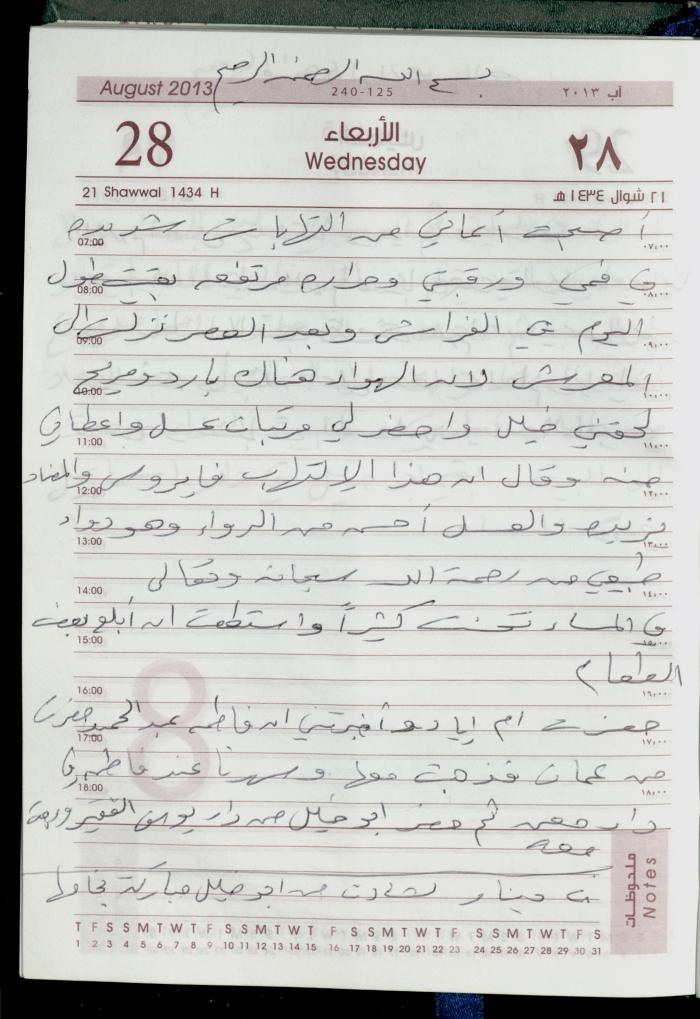 بسم الله الرحمن الرحيم
August 2013
240-125
آب ٢٠١٣
28
الأربعاء
Wednesday
٢٨
21 Shawwal 1434 H
٢١ شوال ١٤٣٤ هـ
أصبحت أعاني من التهابات شديده
07:00 ٠٧,٠٠
في فمي ورقبتي وحراره مرتفعه بقيت طول
08:00 ٠٨,٠٠
اليوم في الفراش وبعد العصر نزلت الى
09:00 ٠٩,٠٠
المعرش لان الهواء هناك بارد ومريح
10:00 ١٠,٠٠
لحقني خليل واحضر لي مرتبان عسل واعطاني
11:00 ١١,٠٠
منه وقال ان هذا الالتهاب فايروس والمضاد
12:00 ١٢,٠٠
يزيده والعسل أحسن من الدواء وهو دواء
13:00 ١٣,٠٠
طبيعي من رحمة الله سبحانه وتعالى
14:00 ١٤,٠٠
في المساء تحسنت كثيراً واستطعت ان أبلع بعض
15:00 ١٥,٠٠
الطعام
16:00 ١٦,٠٠
حضرت ام إياد وأخبرتني ان فاطمه عبد الحميد حضرت
17:00 ١٧,٠٠
من عمان فذهبت معها وسهرنا عند فاطمه في
18:00 ١٨,٠٠
دار ثم حضر ابو خليل من دار يوسف الفقير
معه
دينار من ابو خليل
ملحوظات
Notes
T F S S M T W T F S S M T W T F S S M T W T F S S M T W T F S
1 2 3 4 5 6 7 8 9 10 11 12 13 14 15 16 17 18 19 20 21 22 23 24 25 26 27 28 29 30 31